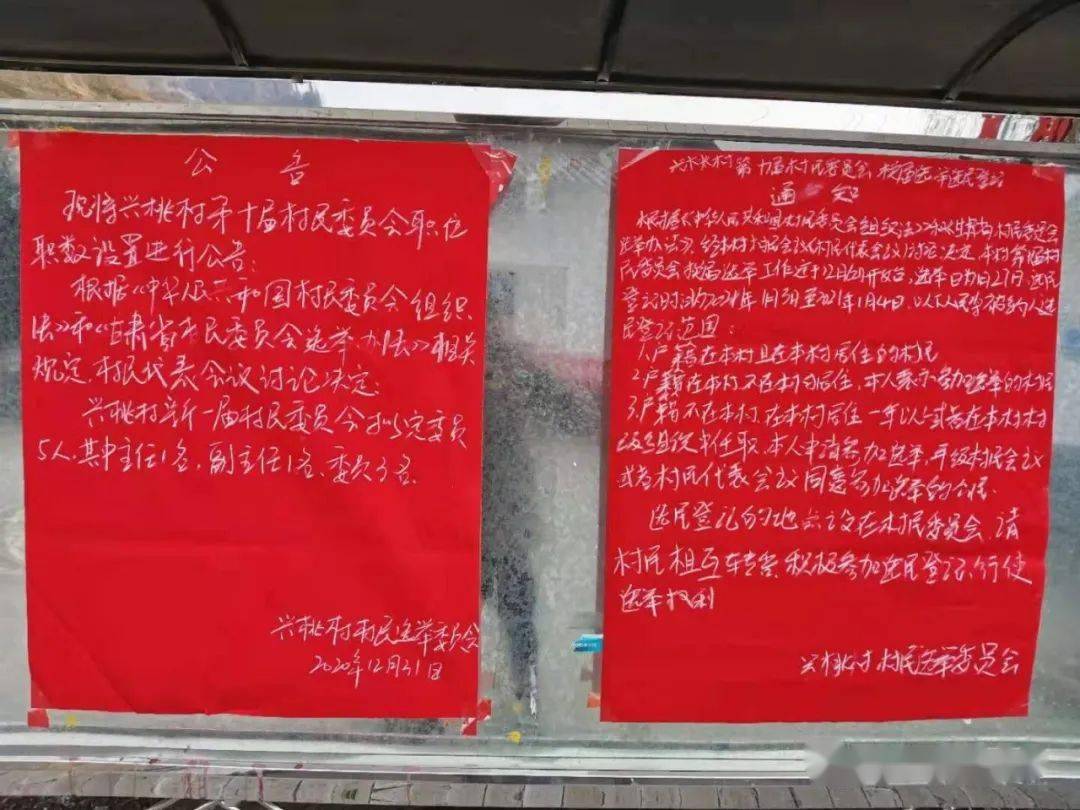 公告
现将兴桃村第十届村民委员会职位
职数设置进行公告:
根据《中华人民共和国村民委员会组织
法》和《甘肃省村民委员会选举办法》相关
规定,村民代表会议讨论决定:
兴桃村新一届村民委员会拟定委员
5人,其中主任1名,副主任1名,委员3名。
兴桃村村民选举委员会
2020年12月31日
兴桃村第十届村民委员会换届选举选民登记
通知
根据《中华人民共和国村民委员会组织法》和《甘肃省村民委员会
选举办法》,经本村村民会议(村民代表会议)讨论决定,本村第十届村
民委员会换届选举工作
选民
登记时间为
民登记范围:
1.户籍在本村且在本村居住的村民
2.户籍在本村,不在本村居住,本人表示参加选举的村民
3.户籍不在本村,在本村居住一年以上或者在本村村
级组织中任职,本人申请参加选举,并经村民会议
或者村民代表会议同意参加选举的公民。
选民登记的地点设在村民委员会,请
村民相互转告,积极参加选民登记,行使
选举权利
兴桃村村民选举委员会